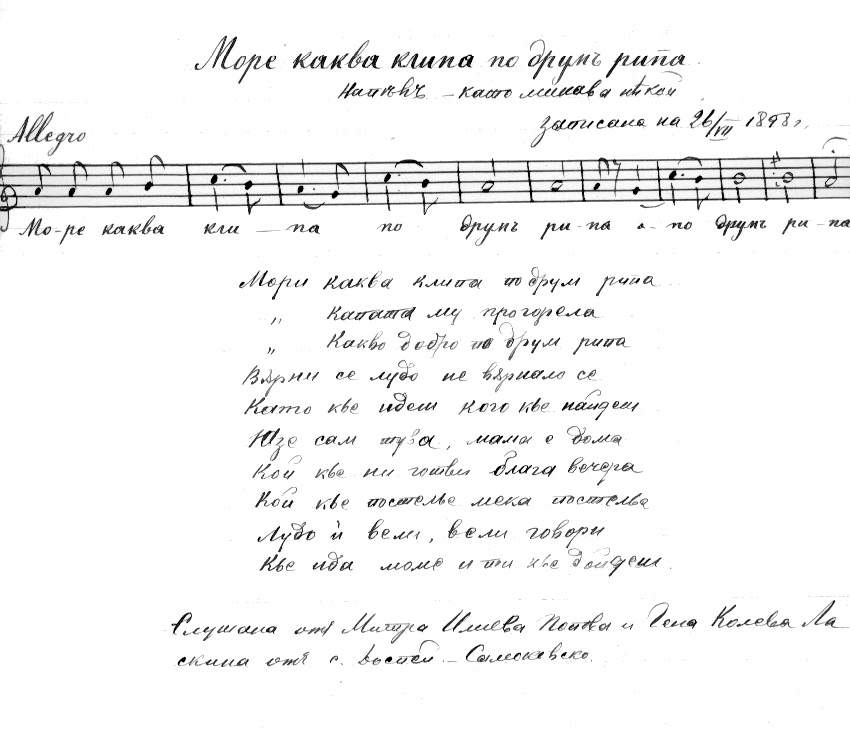 Море каква клипа по друмъ рипа
Напѣвъ – като минава нѣкой
записана на 26/VII 1898 г.
Allegro
Мо-ре каква кли – па по друмъ ри-па о-по друмъ ри-па
Мори каква клипа по друм рипа
„ Капата му прогорела
„ Какво добро по друм рипа
Върни се лудо не върнало се
Като кье идеш кого кье найдеш
Юзе сам тува, мама е дома
Кой кье ни готви блага вечера
Кой кье постелье мека постелва
Лудо ѝ вели, вели говори
Кье ида моме и ти кье дойдеш.
Слушана отъ Митра Илиева Попова и Гена Колева Ла
скина отъ с. Доспей – Самоковско.